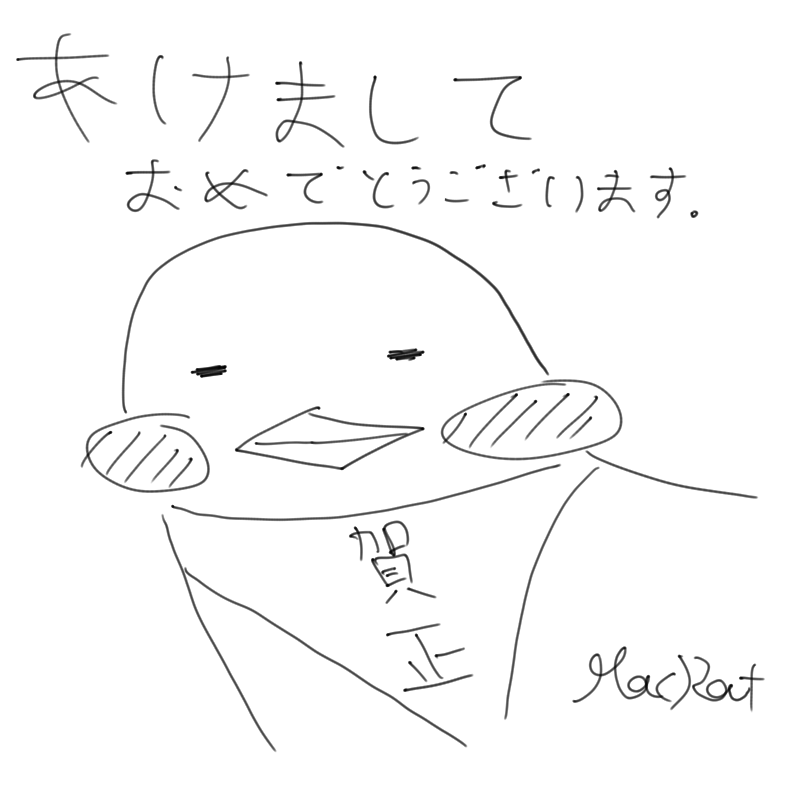 あけまして
おめでとうございます。
賀
正
MacRat